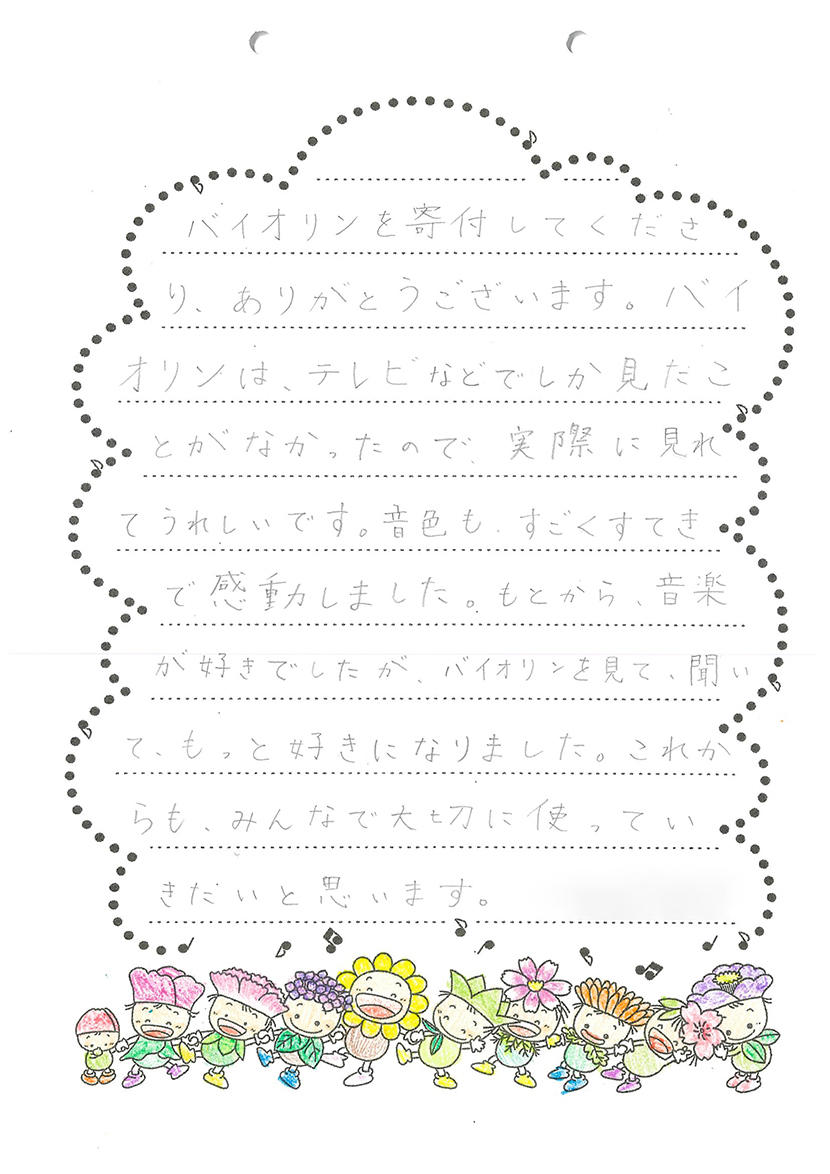 バイオリンを寄付してくださ
り、ありがとうございます。バイ
オリンは、テレビなどでしか見たこ
とがなかったので、実際に見れ
てうれしいです。音色も、すごくすてき
で感動しました。もとから、音楽
が好きでしたが、バイオリンを見て、聞い
て、もっと好きになりました。これか
らも、みんなで大切に使ってい
きだいと思います。